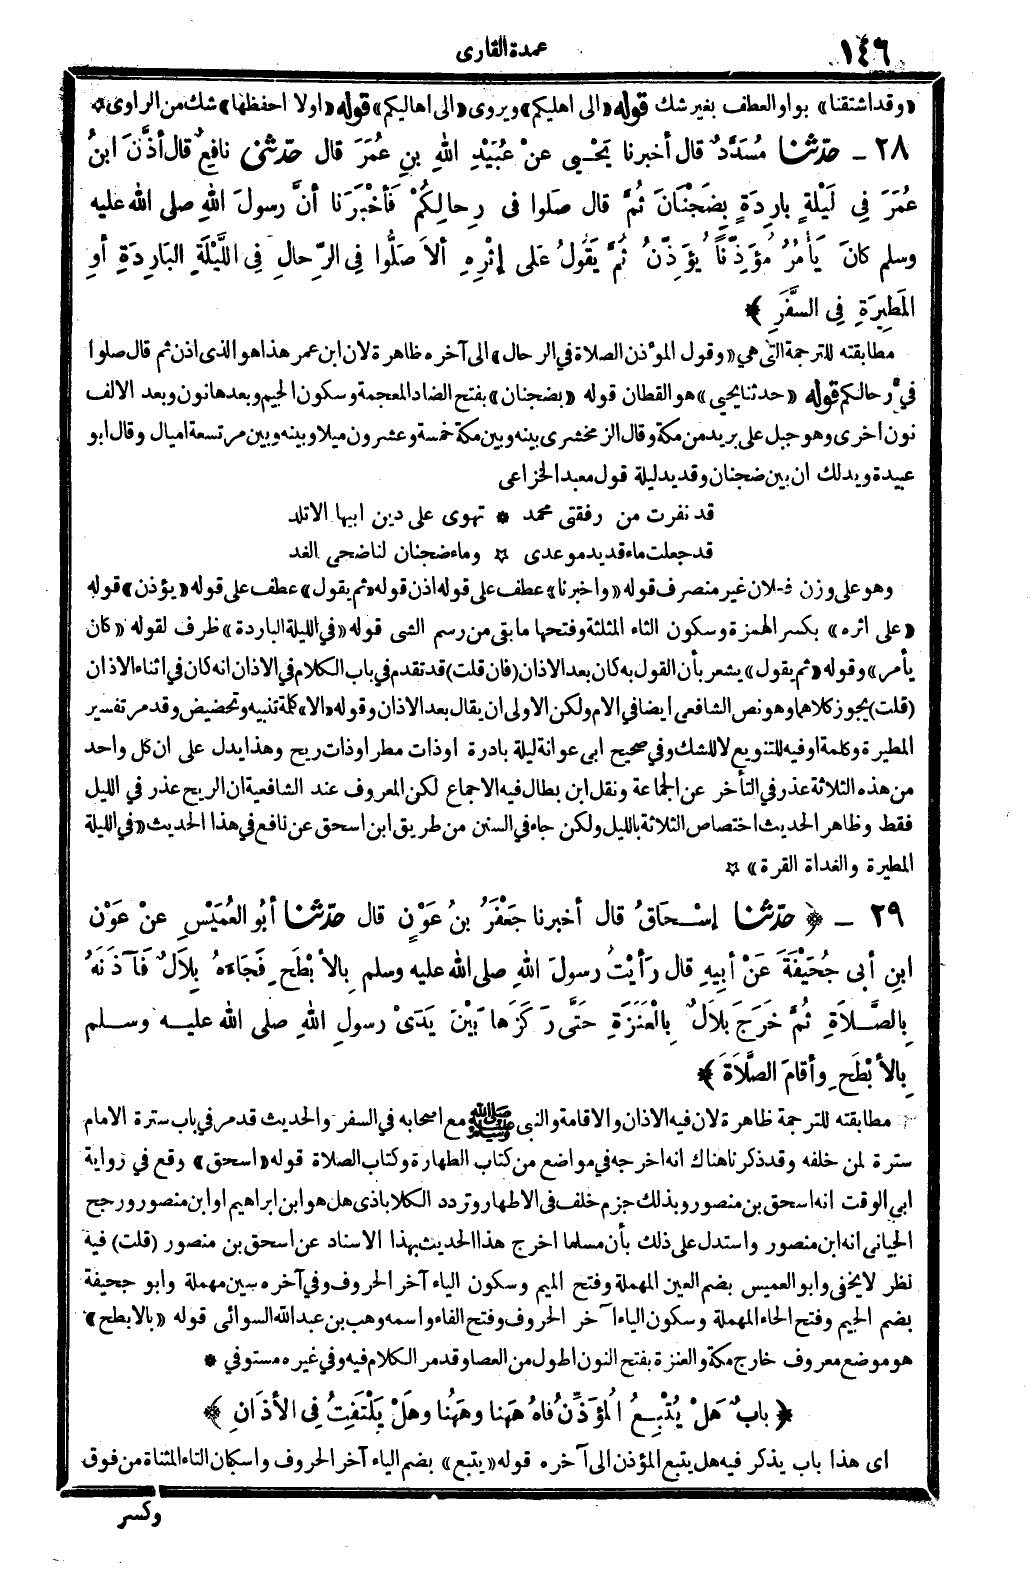 ١٤٦
عمدة القارى
«وقد اشتقنا» بواو العطف بغير شك قوله «الى اهليكم» ويروى «الى اهاليكم» قوله «اولا احفظها» شك من الراوى ✡
٢٨ ـ حدّثنا مُسَدَّدٌ قال أخبرنا يَحْيى عنْ عُبَيْدِ اللهِ بنِ عُمَرَ قال حدّثني نافِعٌ قال أذَّنَ ابنُ
عُمَرَ فِي لَيْلَةٍ بارِدَةٍ بِضَجْنَانَ ثُمَّ قال صَلوا فى رِحالِكُمْ فَأخْبَرَنَا أنَّ رسولَ اللهِ صلى الله عليه
وسلم كانَ يَأمُرُ مُؤَذِّناً يُؤَذِّنُ ثُمَّ يَقُولُ عَلى إثْرِهِ ألاَ صَلُّوا فِي الرِّحالِ فِي اللَّيْلَةِ البَارِدَةِ أوِ
المَطِيرَةِ فِي السَّفَرِ ﴾
مطابقته للترجمة التى هي «وقول المؤذن الصلاة في الرحال» الى آخره ظاهرة لان ابن عمر هذا هو الذى اذن ثم قال صلوا
في رحالكم قوله «حدثنا يحيى» هو القطان قوله «بضجنان» بفتح الضاد المعجمة وسكون الجيم وبعدها نون وبعد الالف
نون اخرى وهو جبل على بريد من مكة وقال الزمخشرى بينه وبين مكة خمسة وعشرون ميلا وبينه وبين مر تسعة اميال وقال ابو
عبيدة ويدلك ان بين ضجنان وقديد ليلة قول معبد الخزاعى
قد نفرت من رفقتى محمد * تهوى على دين ابيها الاتلد
قد جعلت ماء قديد موعدى ✡ وماء ضجنان لنا ضحى الغد
وهو على وزن فعلان غير منصرف قوله «واخبرنا» عطف على قوله اذن قوله «ثم يقول» عطف على قوله «يؤذن» قوله
«على اثره» بكسر الهمزة وسكون الثاء المثلثة وفتحها ما بقى من رسم الشى قوله «في الليلة الباردة» ظرف لقوله «كان
يأمر» وقوله «ثم يقول» يشعر بأن القول به كان بعد الاذان (فان قلت) قد تقدم في باب الكلام في الاذان انه كان في اثناء الاذان
(قلت) يجوز كلاهما وهو نص الشافعى ايضا فى الام ولكن الاولى ان يقال بعد الاذان وقوله «الا» كلمة تنبيه وتحضيض وقد مر تفسير
المطيرة وكلمة او فيه للتنويع لا للشك وفي صحيح ابى عوانة ليلة بادرة اوذات مطر اوذات ريح وهذا يدل على ان كل واحد
من هذه الثلاثة عذر في التأخر عن الجماعة ونقل ابن بطال فيه الاجماع لكن المعروف عند الشافعية ان الريح عذر في الليل
فقط وظاهر الحديث اختصاص الثلاثة بالليل ولكن جاء في السنن من طريق ابن اسحق عن نافع في هذا الحديث «في الليلة
المطيرة والغداة القرة» ✡
٢٩ ـ ﴿ حدّثنا إسْحاقُ قال أخبرنا جَعْفَرُ بنُ عَوْنٍ قال حدّثنا أبُو العُمَيْسِ عنْ عَوْنِ
ابنِ أبى جُحَيْفَةَ عَنْ أبيهِ قال رَأيْتُ رسولَ اللهِ صلى الله عليه وسلم بِالأَبْطَحِ فَجَاءَهُ بِلاَلٌ فَآذَنَهُ
بِالصَّلاَةِ ثُمَّ خَرَجَ بِلاَلٌ بِالْعَنَزَةِ حَتَّى رَكَزَها بَيْنَ يَدَىْ رسولِ اللهِ صلى الله عليه وسلم
بِالأبْطَحِ وأقامَ الصَّلاَةَ ﴾
مطابقته للترجمة ظاهرة لان فيه الاذان والاقامة والنبى ﷺ مع اصحابه في السفر والحديث قد مر في باب سترة الامام
سترة لمن خلفه وقد ذكرنا هناك انه اخرجه في مواضع من كتاب الطهارة وكتاب الصلاة قوله «اسحق» وقع في رواية
ابى الوقت انه اسحق بن منصور وبذلك جزم خلف فى الاطهار وتردد الكلاباذى هل هو ابن ابراهيم او ابن منصور ورجح
الجيانى انه ابن منصور واستدل على ذلك بأن مسلما اخرج هذا الحديث بهذا الاسناد عن اسحق بن منصور (قلت) فيه
نظر لا يخفى وابو العميس بضم العين المهملة وفتح الميم وسكون الياء آخر الحروف وفي آخره سين مهملة وابو جحيفة
بضم الجيم وفتح الحاء المهملة وسكون الياء آخر الحروف وفتح الفاء واسمه وهب بن عبد الله السوائى قوله «بالابطح»
هو موضع معروف خارج مكة والعنزة بفتح النون اطول من العصا وقد مر الكلام فيه وفي غيره مستوفي *
﴿ بابٌ هَلْ يُتْبِعُ المُؤَذِّنُ فَاهُ هَهنا وهَهُنا وهَلْ يَلْتَفِتُ فِي الأذَانِ ﴾
اى هذا باب يذكر فيه هل يتبع المؤذن الى آخره قوله «يتبع» بضم الياء آخر الحروف واسكان التاء المثناة من فوق
وكسر